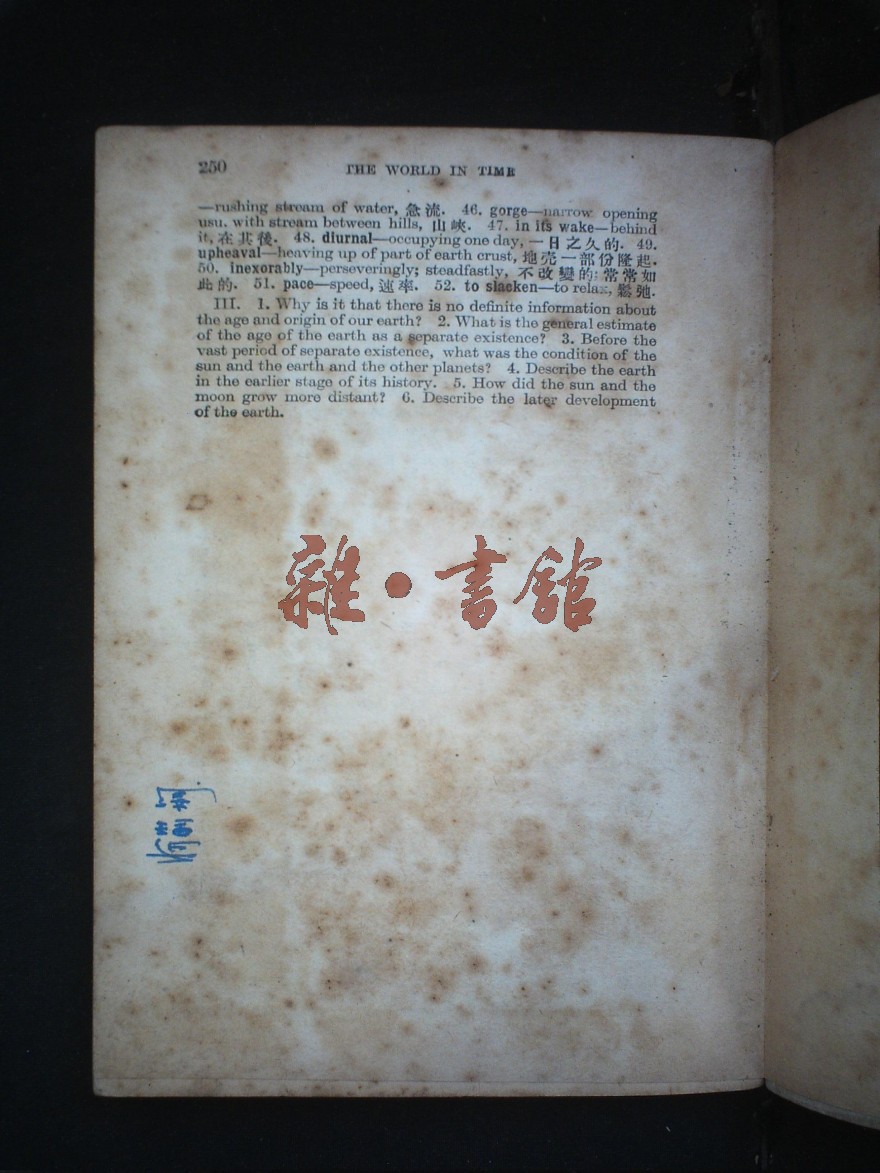 250 THE WORLD IN TIME
—rushing stream of water, 急流. 46. gorge—narrow opening
usu. with stream between hills, 山峽. 47. in its wake—behind
it, 在其後. 48. diurnal—occupying one day, 一日之久的. 49.
upheaval—heaving up of part of earth crust, 地壳一部份隆起.
50. inexorably—perseveringly; steadfastly, 不改變的; 常常如
此的. 51. pace—speed, 速率. 52. to slacken—to relax, 鬆弛.
III. 1. Why is it that there is no definite information about
the age and origin of our earth? 2. What is the general estimate
of the age of the earth as a separate existence? 3. Before the
vast period of separate existence, what was the condition of the
sun and the earth and the other planets? 4. Describe the earth
in the earlier stage of its history. 5. How did the sun and the
moon grow more distant? 6. Describe the later development
of the earth.
雜·書舘